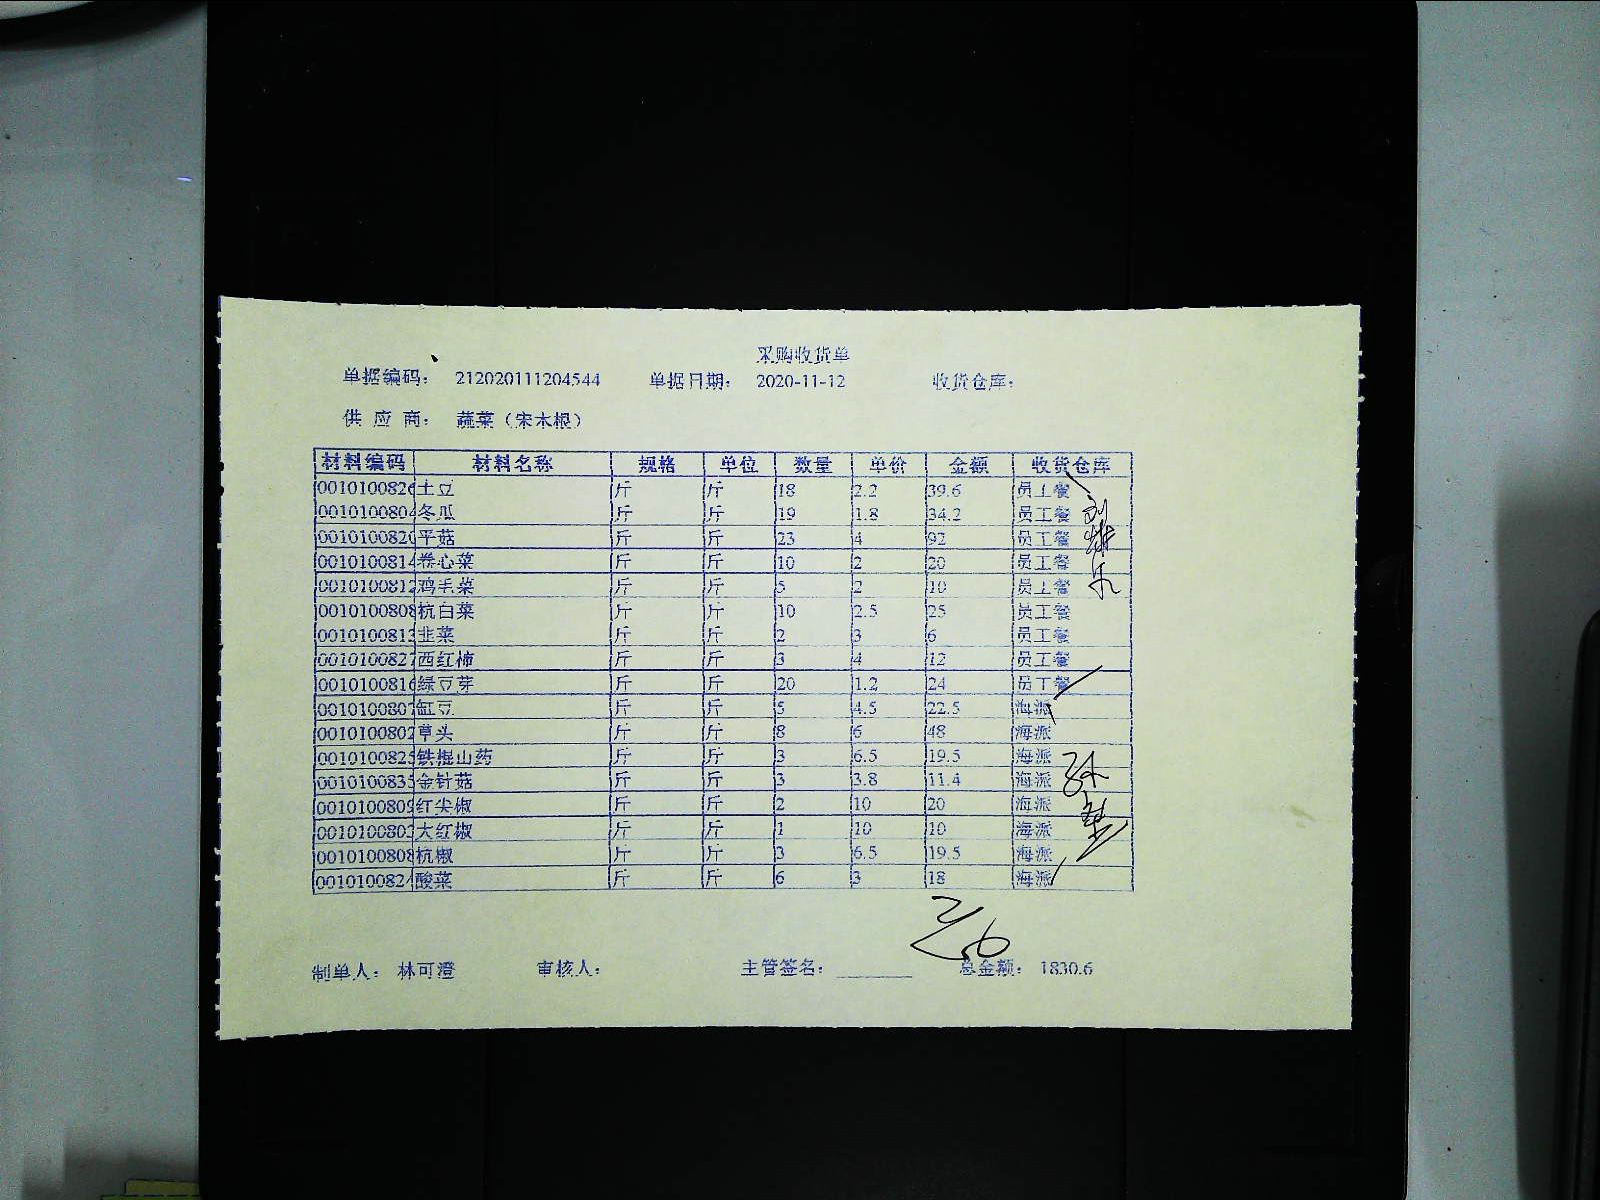 采购收货单
单据编码： 212020111204544 单据日期： 2020-11-12 收货仓库：
供 应 商： 蔬菜（宋木根）
材料编码 材料名称 规格 单位 数量 单价 金额 收货仓库
0010100826 土豆 斤 斤 18 2.2 39.6 员工餐
0010100804 冬瓜 斤 斤 19 1.8 34.2 员工餐
0010100820 平菇 斤 斤 23 4 92 员工餐
0010100814 卷心菜 斤 斤 10 2 20 员工餐
0010100812 鸡毛菜 斤 斤 5 2 10 员工餐
0010100808 杭白菜 斤 斤 10 2.5 25 员工餐
0010100813 韭菜 斤 斤 2 3 6 员工餐
0010100827 西红柿 斤 斤 3 4 12 员工餐
0010100816 绿豆芽 斤 斤 20 1.2 24 员工餐
0010100807 缸豆 斤 斤 5 4.5 22.5 海派
0010100802 草头 斤 斤 8 6 48 海派
0010100825 铁棍山药 斤 斤 3 6.5 19.5 海派
0010100835 金针菇 斤 斤 3 3.8 11.4 海派
0010100809 红尖椒 斤 斤 2 10 20 海派
0010100803 大红椒 斤 斤 1 10 10 海派
0010100808 杭椒 斤 斤 3 6.5 19.5 海派
0010100824 酸菜 斤 斤 6 3 18 海派
制单人： 林可澄 审核人： 主管签名： 总金额： 1830.6